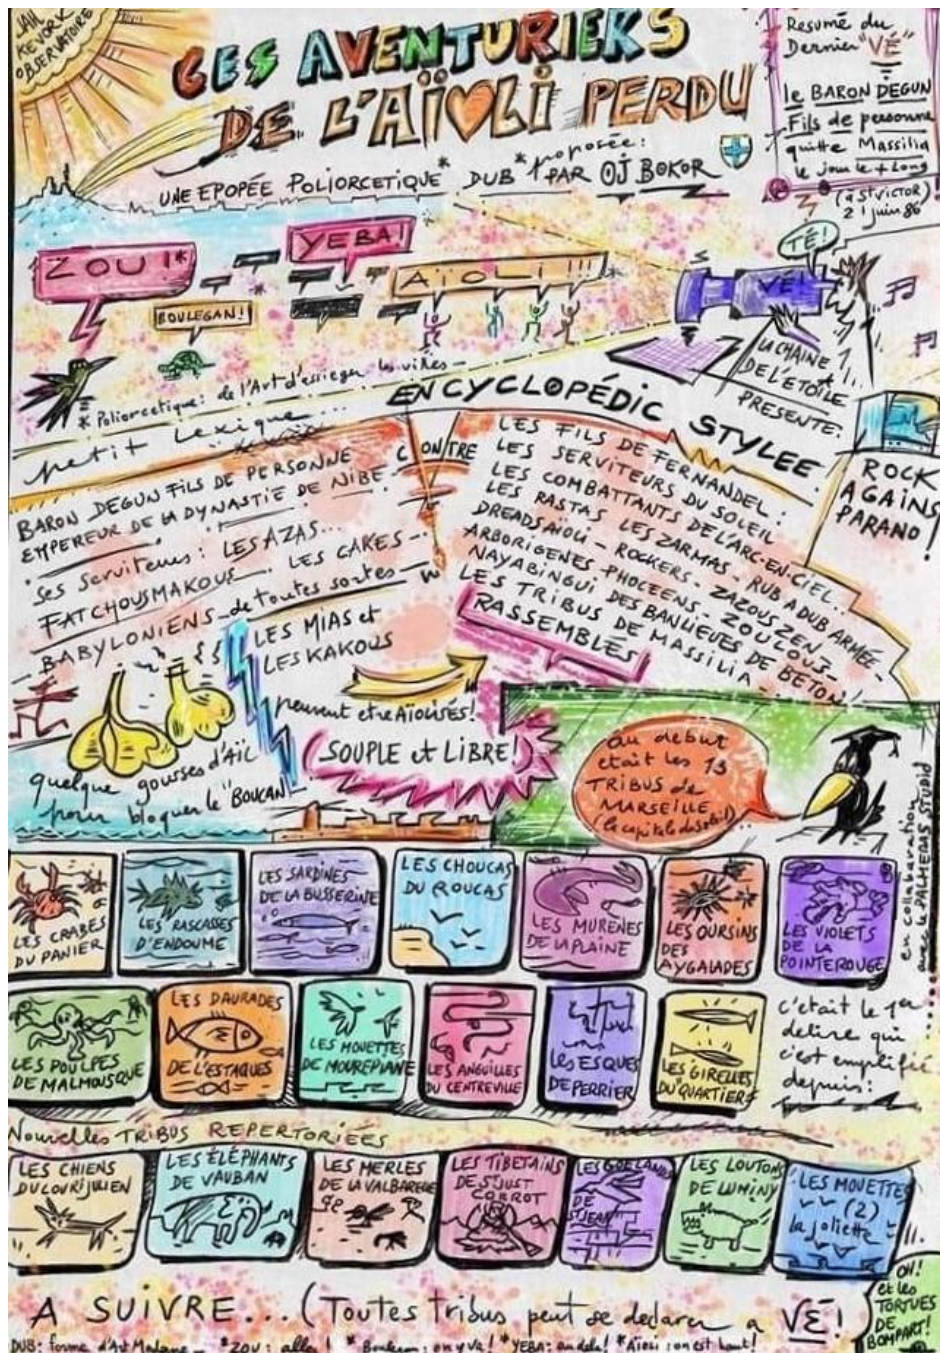 JAH
KEVORK
OBSERVATOIRE
LES AVENTURIERS
DE L'AÏOLI PERDU
UNE EPOPÉE POLIORCETIQUE* DUB *poposée:
PAR OJ BOKOR
Resumé du
Dernier "VÉ"
le BARON DEGUN
Fils de personne
quitte Massilia
le jour le + Long
(à St VICTOR)
21 juin 86
ZOU!*
YEBA!
BOULEGAN!
AÏOLI!!!*
TÉ!
VÉ!
LA CHAINE
DE L'ETOILE
PRESENTE:
* Poliorcetique: de l'Art d'assieger les villes
ENCYCLOPÉDIC STYLEE
petit Lexique...
ROCK
AGAINS
PARANO!
BARON DEGUN FILS DE PERSONNE
EMPEREUR DE LA DYNASTIE DE NIBE.
ses serviteurs: LES AZAS...
FATCHOUSMAKOUS LES CAKES
BABYLONIENS de toutes sortes
CONTRE
LES FILS DE FERNANDEL:
LES SERVITEURS DU SOLEIL:
LES COMBATTANTS DE L'ARC-EN-CIEL...
LES RASTAS LES ZARMAS - RUB A DUB ARMÉE
DREADSAÏOLI - ROCKERS - ZAZOUS ZEN -
ARBORIGENES PHOCEENS - ZOULOUS -
NAYABINGUI DES BANLIEUES DE BETON!
LES TRIBUS DE MASSILIA
RASSEMBLÉS
LES MIAS et
LES KAKOUS
peuvent etre Aïolisés!
SOUPLE et LIBRE!
quelque gousses d'AÏL
pour bloquer le "BOUCAN"
au debut
etait les 13
TRIBUS de
MARSEILLE
(la capitale du soleil)
en collaboration
avec le DALMEDAS STUPID
LES CRABES
DU PANIER
LES RASCASSES
D'ENDOUME
LES SARDINES
DE LA BUSSERINE
LES CHOUCAS
DU ROUCAS
LES MURENES
DE LA PLAINE
LES OURSINS
DES
AYGALADES
LES VIOLETS
DE LA
POINTEROUGE
LES POULPES
DE MALMOUSQUE
LES DAURADES
DE L'ESTAQUES
LES MOUETTES
DE MOUREPIANE
LES ANGUILLES
DU CENTREVILLE
LES ESQUES
DE PERRIER
LES GIRELLES
DU QUARTIER
c'etait le 1er
delire qui
c'est emplifié
depuis:
Nouvelles TRIBUS REPERTORIÉES
LES CHIENS
DU LOUVRIJULIEN
LES ÉLÉPHANTS
DE VAUBAN
LES MERLES
DE LA VALBARELLE
LES TIBETAINS
DE ST JUST
COROT
LES GOELANDS
DE
ST JEAN
LES LOUTONS
DE LUMINY
LES MOUETTES
(2)
la Joliette
A SUIVRE... (Toutes tribus peut se declarer a VÉ!
OH!
et les
TORTUES
DE
BOMPART!
DUB: forme d'Art Moderne - *ZOU: allez! * Boulegan: on y va! * YEBA: au dela! * Aïoli: on est haut!